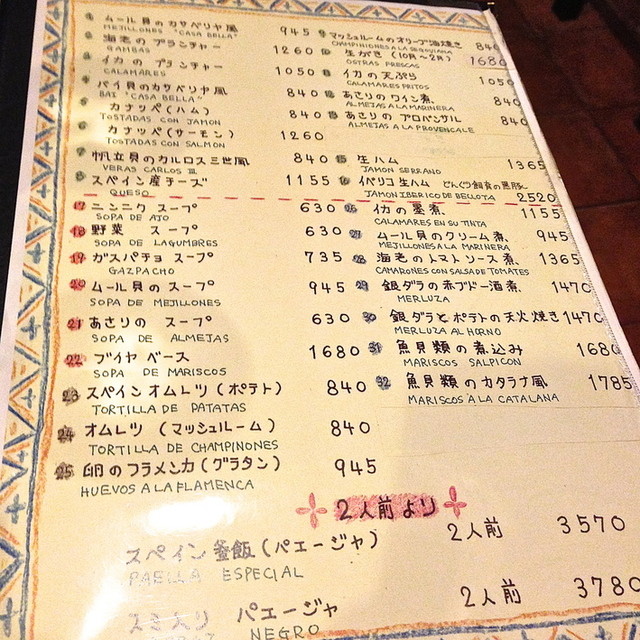 ムール貝のカサベリヤ風 945
MEJILLONES "CASA BELLA"
海老のプランチャー 1260
GAMBAS
イカのプランチャー 1050
CALAMARES
バイ貝のカサベリヤ風 840
BAI "CASA BELLA"
カナッペ(ハム) 840
TOSTADAS CON JAMON
カナッペ(サーモン) 1260
TOSTADAS CON SALMON
7 帆立貝のカルロス三世風 840
VERAS CARLOS III
8 スペイン産チーズ 1155
QUESO
マッシュルームのオリーブ油焼き 840
CHAMPINIONES A LA SEGOVIANA
生がき(10月~2月) 1680
OSTRAS FRESCAS
イカの天ぷら 1050
CALAMARES FRITOS
あさりのワイン煮 840
ALMEJAS A LA MARINERA
あさりのプロバンサル 840
ALMEJAS A LA PROVENCALE
生ハム 1365
JAMON SERRANO
イベリコ生ハム どんぐり飼育の黒豚 2520
JAMON IBERICO DE BELLOTA
17 ニンニクスープ 630
SOPA DE AJO
18 野菜スープ 630
SOPA DE LAGUMBRES
19 ガスパチョスープ 735
GAZPACHO
20 ムール貝のスープ 945
SOPA DE MEJILLONES
21 あさりのスープ 630
SOPA DE ALMEJAS
22 ブイヤベース 1680
SOPA DE MARISCOS
23 スペインオムレツ(ポテト) 840
TORTILLA DE PATATAS
24 オムレツ(マッシュルーム) 840
TORTILLA DE CHAMPINONES
25 卵のフラメンカ(グラタン) 945
HUEVOS A LA FLAMENCA
26 イカの墨煮 1155
CALAMARES EN SU TINTA
27 ムール貝のクリーム煮 945
MEJILLONES A LA MARINERA
28 海老のトマトソース煮 1365
CAMARONES CON SALSA DE TOMATES
29 銀ダラの赤ブドー酒煮 1470
MERLUZA
30 銀ダラとポテトの天火焼き 1470
MERLUZA AL HORNO
31 魚貝類の煮込み 1680
MARISCOS SALPICON
32 魚貝類のカタラナ風 1785
MARISCOS A LA CATALANA
2人前より
スペイン釜飯(パエージャ) 2人前 3570
PAELLA ESPECIAL
スミ入り パエージャ 2人前 3780
NEGRO